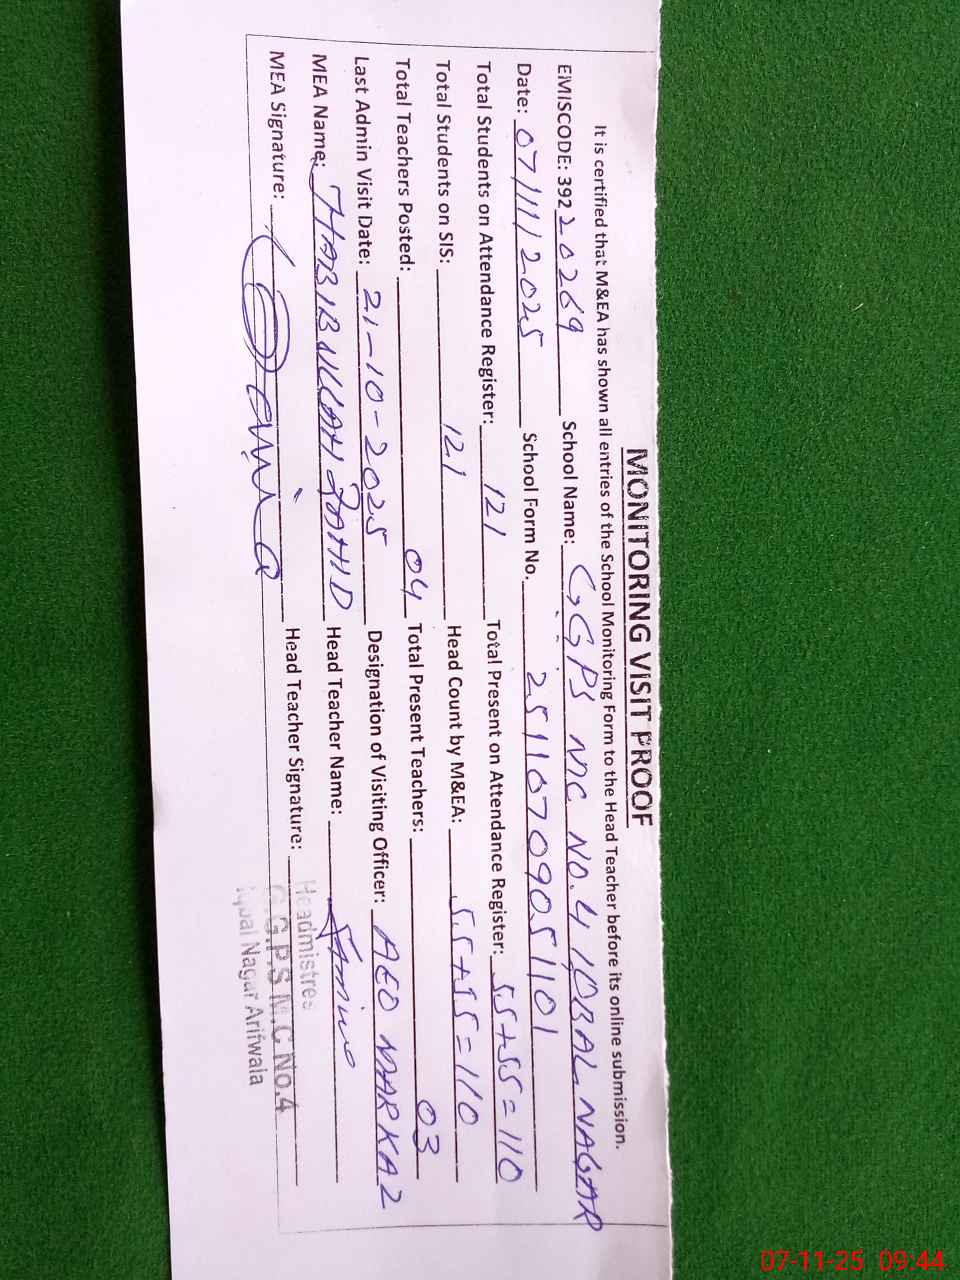 MONITORING VISIT PROOF
It is certified that M&EA has shown all entries of the School Monitoring Form to the Head Teacher before its online submission.
EMISCODE: 39220269 School Name: GGPS MC NO.4 IQBAL NAGAR
Date: 07/11/2025 School Form No. 25110709051101
Total Students on Attendance Register: 121 Total Present on Attendance Register: 55+55=110
Total Students on SIS: 121 Head Count by M&EA: 55+55=110
Total Teachers Posted: 04 Total Present Teachers: 03
Last Admin Visit Date: 21-10-2025 Designation of Visiting Officer: AEO MARKAZ
MEA Name: HABIB ULLAH ZAHID Head Teacher Name:
MEA Signature: Head Teacher Signature:
Headmistres
G.G.P.S M.C No.4
Iqbal Nagar Arifwala
07-11-25 09:44